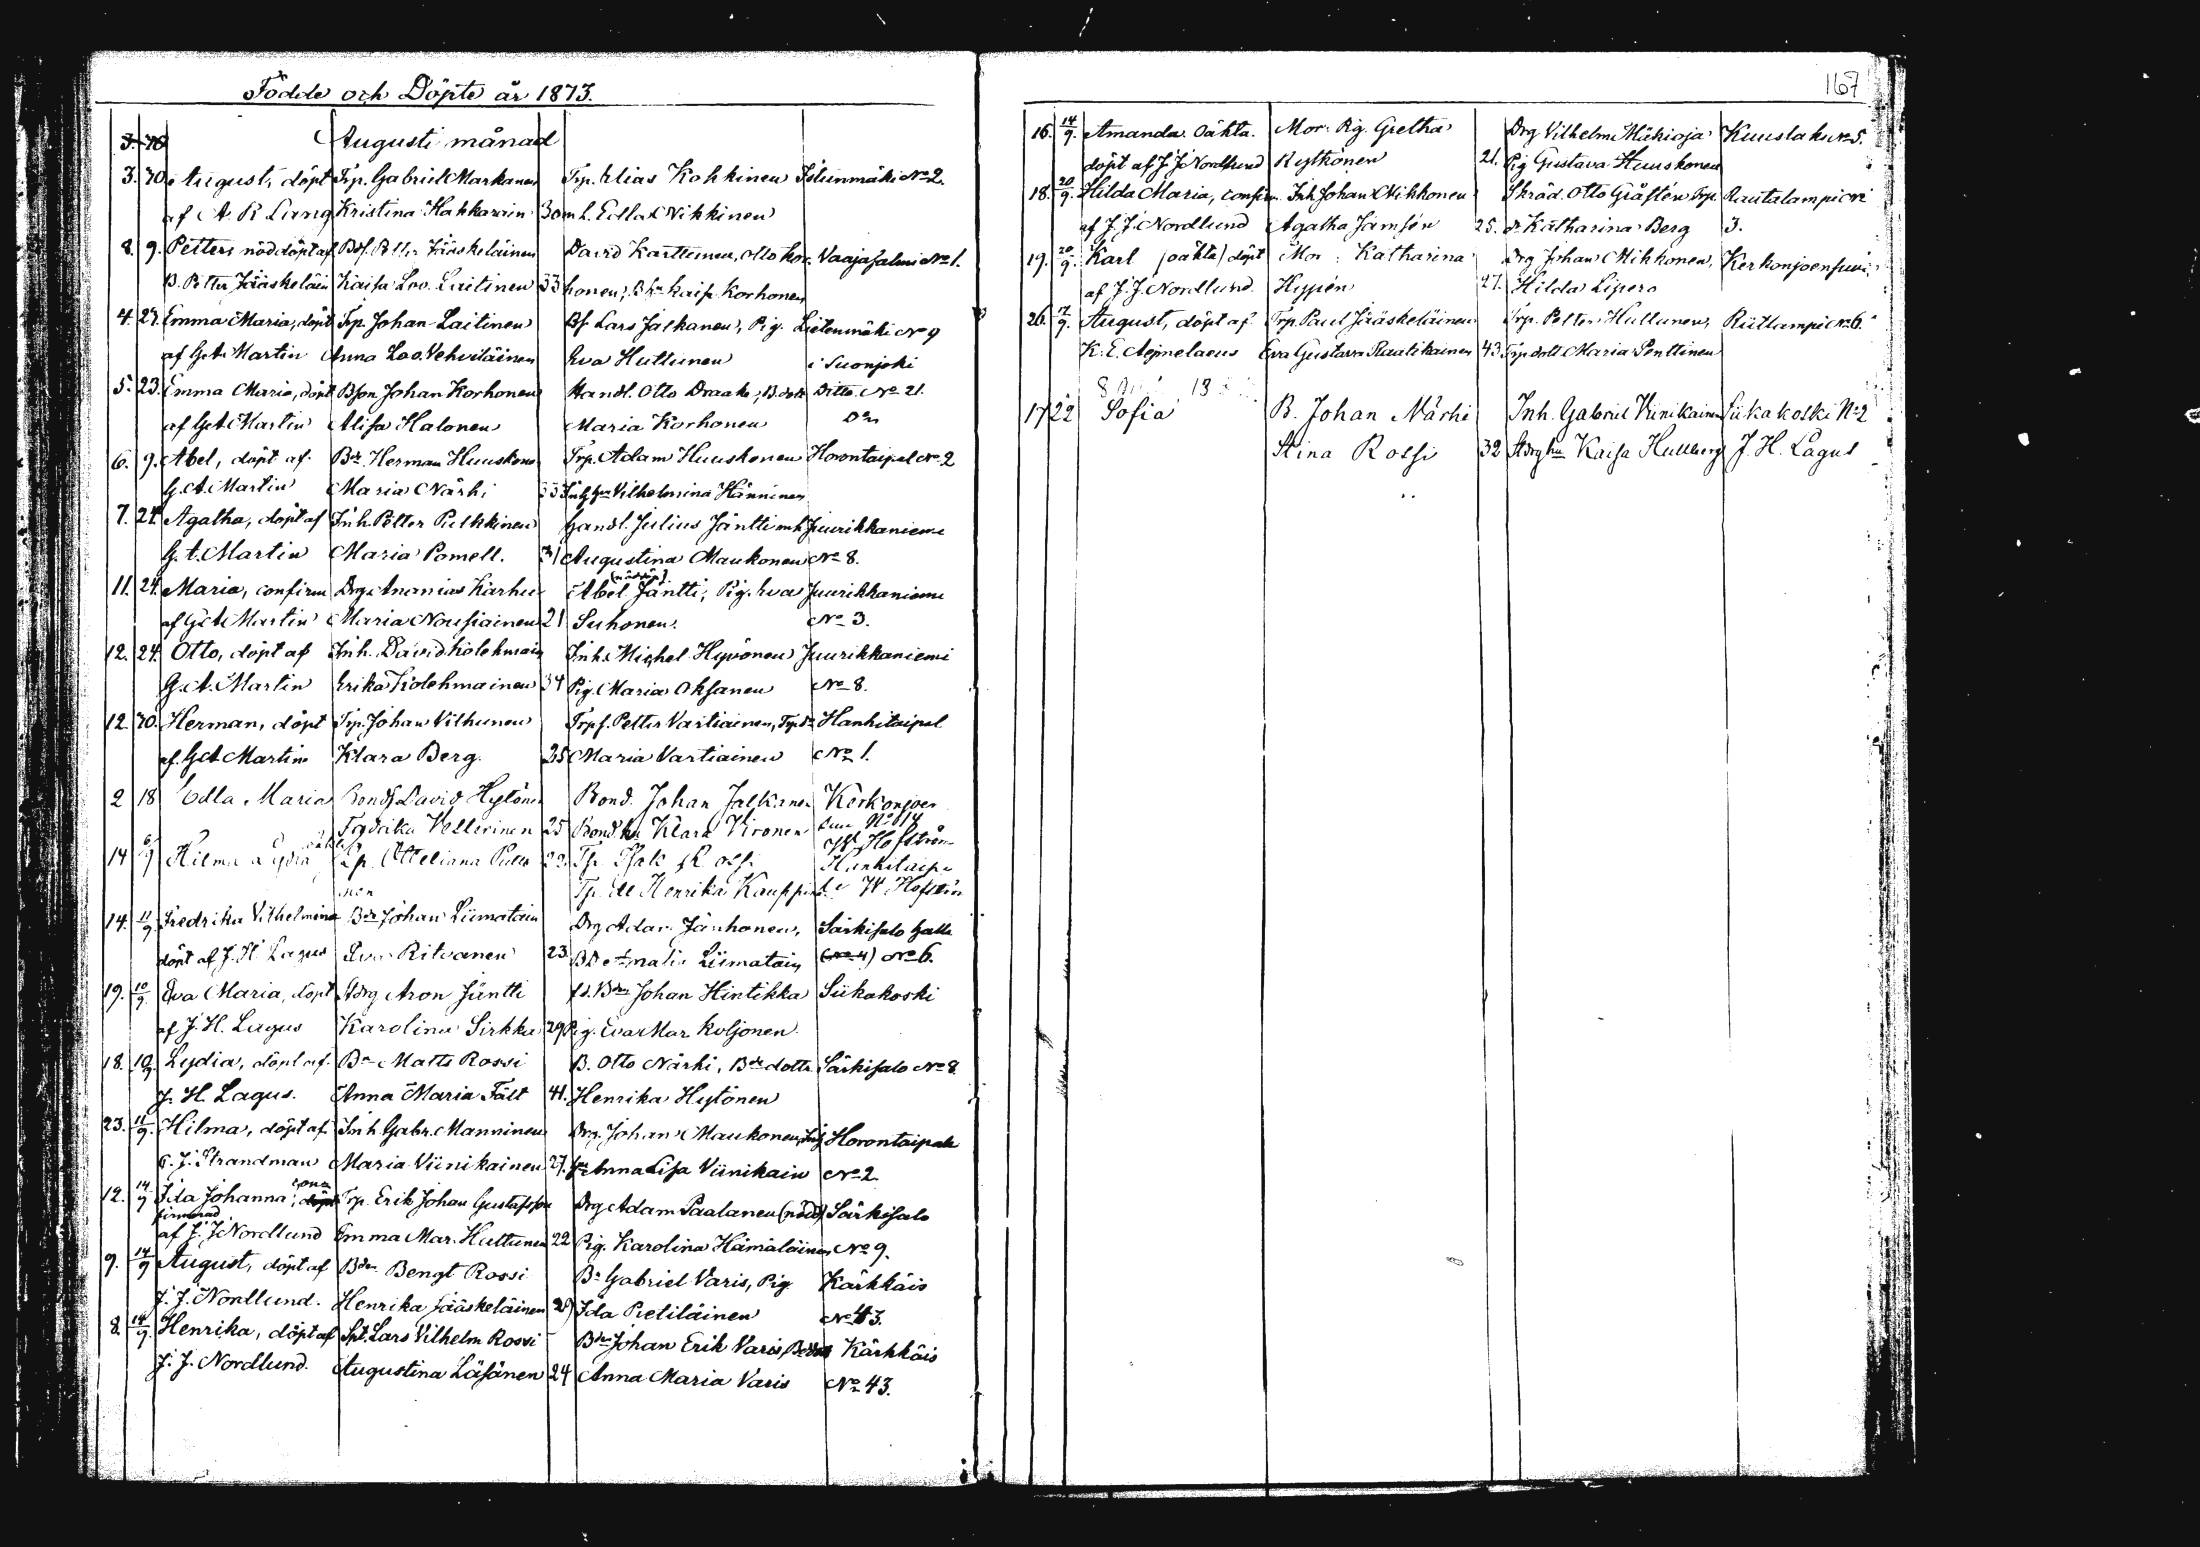 Födde och Döpte år 1873.
Augusti månad
3. 30. August, döpt Trp. Gabriel Markanen Trp. Elias Kokkinen Istunmäki No 2.
af A. R. Lang Kristina Hakkarain 30 m h. Edla Nikkinen
8. 9. Petter, nöddöpt af Bdf. Petter Jääskeläinen David Karttunen, Otto Kor- Vaajasalmi No 1.
B. Petter Jääskeläin Kaisa Lov. Laitinen 33 honen, Kaisa Korhonen
4. 27. Emma Maria, döpt Trp. Johan Laitinen Bf. Lars Jalkanen, Pig. Lietenmäki No 9
af G. A. Martin Anna Lov. Vehviläinen Eva Huttunen i Suonjoki
5. 23. Emma Maria, döpt Bson Johan Korhonen Handl. Otto Draake, B. dott Ditto No 21.
af G. A. Martin Alisa Halonen Maria Korhonen Dn
6. 9. Abel, döpt af Bdr. Herman Huuskone Trp. Adam Huuskonen Horontaipal No 2
G. A. Martin Maria Närhi 33 Vilhelmina Hänninen
7. 24. Agatha, döpt af Inh. Petter Pulkkinen Handl. Julius Jäntti m h Juurikkaniemi
G. A. Martin Maria Pomell. 31 Augustina Maukonen No 8.
11. 24. Maria, confirm Drg. Ananias Karhu Abel Jäntti, Pig. Eva Juurikkaniemi
af G. A. Martin Maria Nousiainen 21 Suhonen. No 3.
12. 24. Otto, döpt af Inh. David Kolehmain Inh. Michel Hyvönen Juurikkaniemi
G. A. Martin Erika Kolehmainen 34 Pig. Maria Oksanen No 8.
12. 30. Herman, döpt Trp. Johan Vilhunen Trpf. Petter Vartiainen, Trp dr Hankitaipal
af G. A. Martin Klara Berg. 25 Maria Vartiainen No 1.
2 18 Edla Maria Bondf David Hytöne Bond. Johan Jalkanen Kerkonjoen
Fredrika Vellerinen 25 Bond hu Klara Kironen suu No 14
Hofström
14 6/9 Hilma Lydia oäkta Tp. Otteliana Pulk 22 Tp. Isak Rossi Hankitaipa
nen Tp. dr Henrika Kauppin le Hofström
14. 11/9. Fredrika Vilhelmina Bdr Johan Liimatain Drg Adam Jänhonen, Särkisalo
döpt af J. H. Lagus Eva Ritvanen 23. B D Amalia Liimatain (No 4) No 6.
19. 10/9. Eva Maria, döpt Stdrg Aron Jäntti fd. Bdn Johan Hintikka Siikakoski
af J. H. Lagus Karolina Sirkka 29 Pig. Eva Mar Koljonen
18. 10/9. Lydia, döpt af Bn Matts Rossi B. Otto Närhi, Bde dottr Särkisalo No 8.
J. H. Lagus. Anna Maria Fält 41. Henrika Hytönen
23. 11/9. Hilma, döpt af Inh Gabr. Manninen Drg. Johan Maukonen, Inh Horontaipale
C. J. Strandman Maria Viinikainen 27. hu Anna Lisa Viinikain No 2
12. 14/9 Ida Johanna, con döpt Trp. Erik Johan Gustafsson Drg Adam Paalanen (nöd) Särkisalo
firmerad
af J. J Nordlund Emma Mar. Huttunen 22 Pig. Karolina Hämäläinen No 9.
9. 14/9 August, döpt af Bdn Bengt Rossi Bn Gabriel Varis, Pig Kärkkäis
J. J. Nordlund. Henrika Jääskeläinen 29 Ida Pietiläinen No 43.
8. 14/9. Henrika, döpt af Spt. Lars Vilhelm Rossi Bdn Johan Erik Varis, Kärkkäis
J. J. Nordlund. Augustina Läsänen 24 Anna Maria Varis No 43.
167
16. 14/9. Amanda. Oäkta. Mor: Pig. Gretha Drg Vilhelm Mäkioja Kuuslaks No 5.
döpt af J J Nordlund Kytkönen 21. Pig Gustava Huuskonen
18. 20/9. Hilda Maria, confirm. Inh Johan Mikkonen Skräd. Otto Gråsten Trp. Rautalampi
af J. J. Nordlund Agatha Jamsén 25. dr Katharina Berg 3.
19. 20/9. Karl (oäkta) döpt Mor: Katharina Drg Johan Mikkonen, Kerkonjoensuu
af J. J. Nordlund. Hypén 27. Hilda Lipero
26. 9. August, döpt af Trp. Paul Jääskeläinen Trp. Petter Huttunen, Riitlampi No 6.
K. E. Aejmelaeus Eva Gustava Raatikainen 43 Trp dott Maria Penttinen
17 22 Sofia B. Johan Närhi Inh. Gabriel Viinikainen Siikakoski No 2
Stina Rossi 32 Stdrg hu Kaisa Hullberg J. H. Lagus